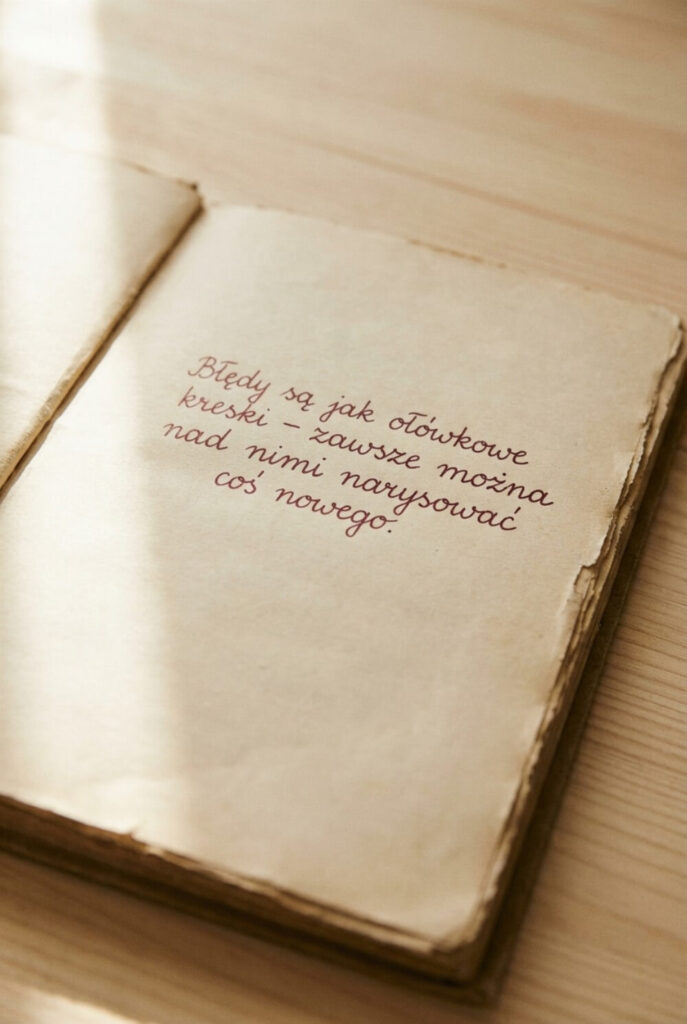 Błędy są jak ołówkowe
kreski – zawsze można
nad nimi narysować
coś nowego.